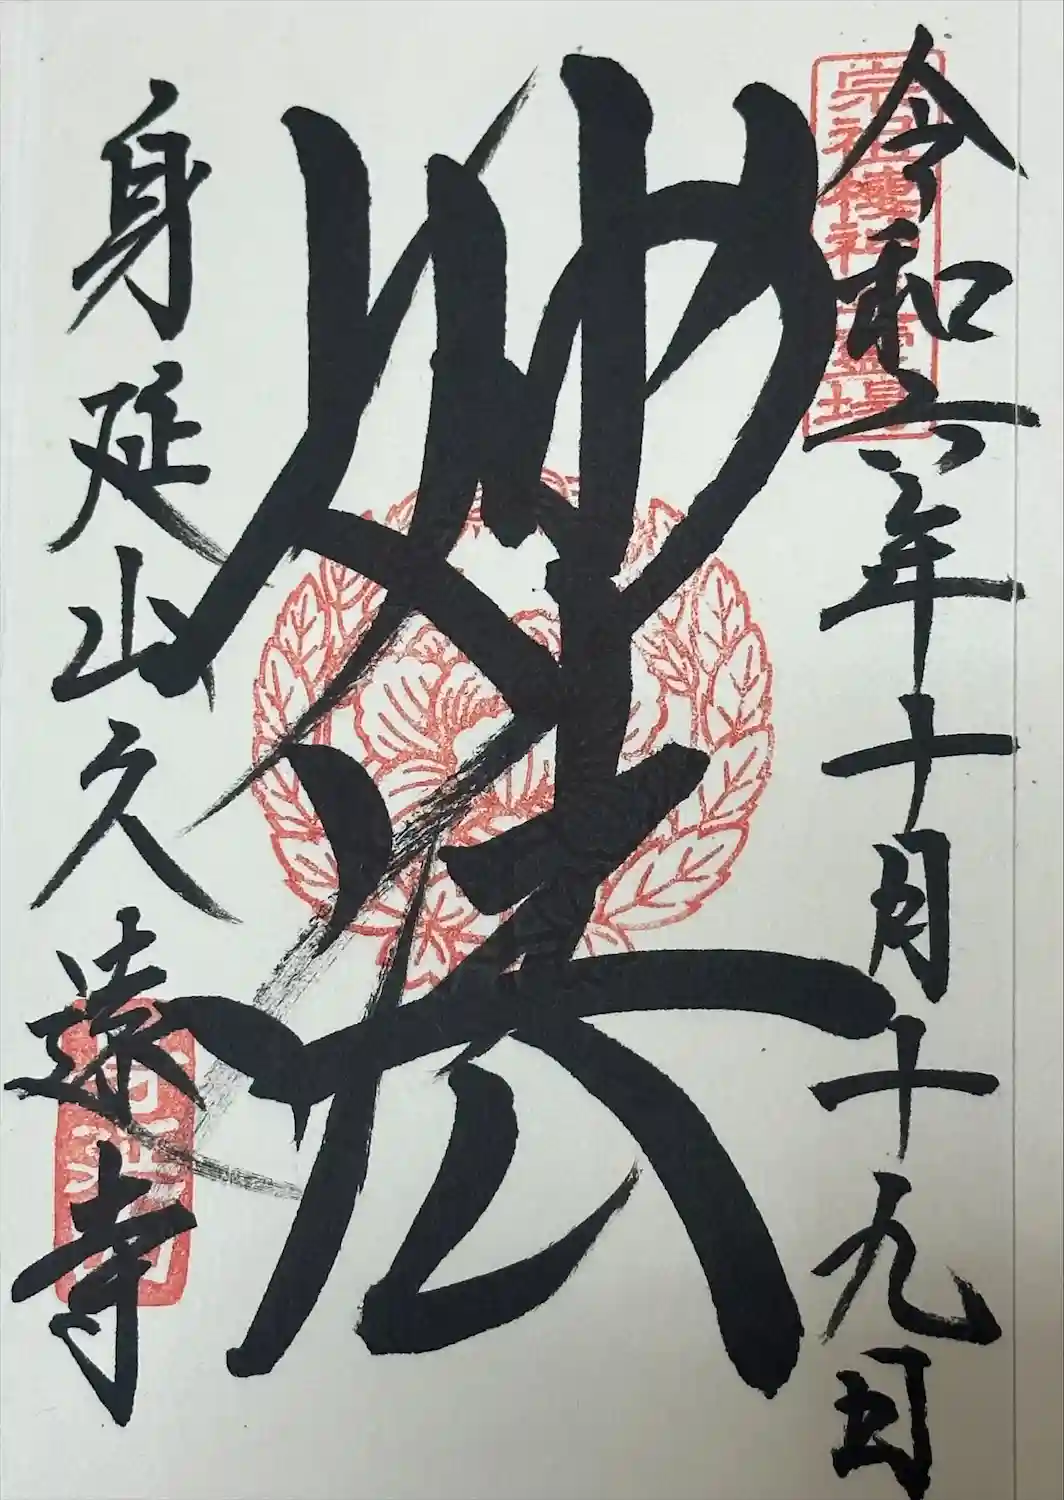 令和六年十月十九日
宗祖棲神霊場
妙法
身延山久遠寺